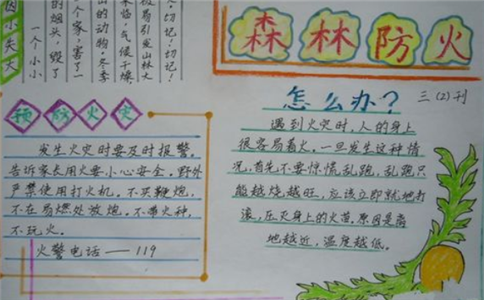 森林防火
因小失大
一个小小
的烟头,毁了
个家,害了一
山的动物。冬季
来临,气候干燥,
极易引发山林大
切记!切记!
预防火灾
发生火灾时要及时报警。
告诉家长用火要小心安全。野外
严禁使用打火机。不买鞭炮。
不在易燃处放炮。不带火种,
不玩火。
火警电话——119
怎么办?
三(2)刊
遇到火灾时,人的身上
很容易着火。一旦发生这种情
况,首先不要惊慌乱跑,乱跑只
能越烧越旺,应该立即就地打
滚,压灭身上的火苗。原因是离
地越近,温度越低。